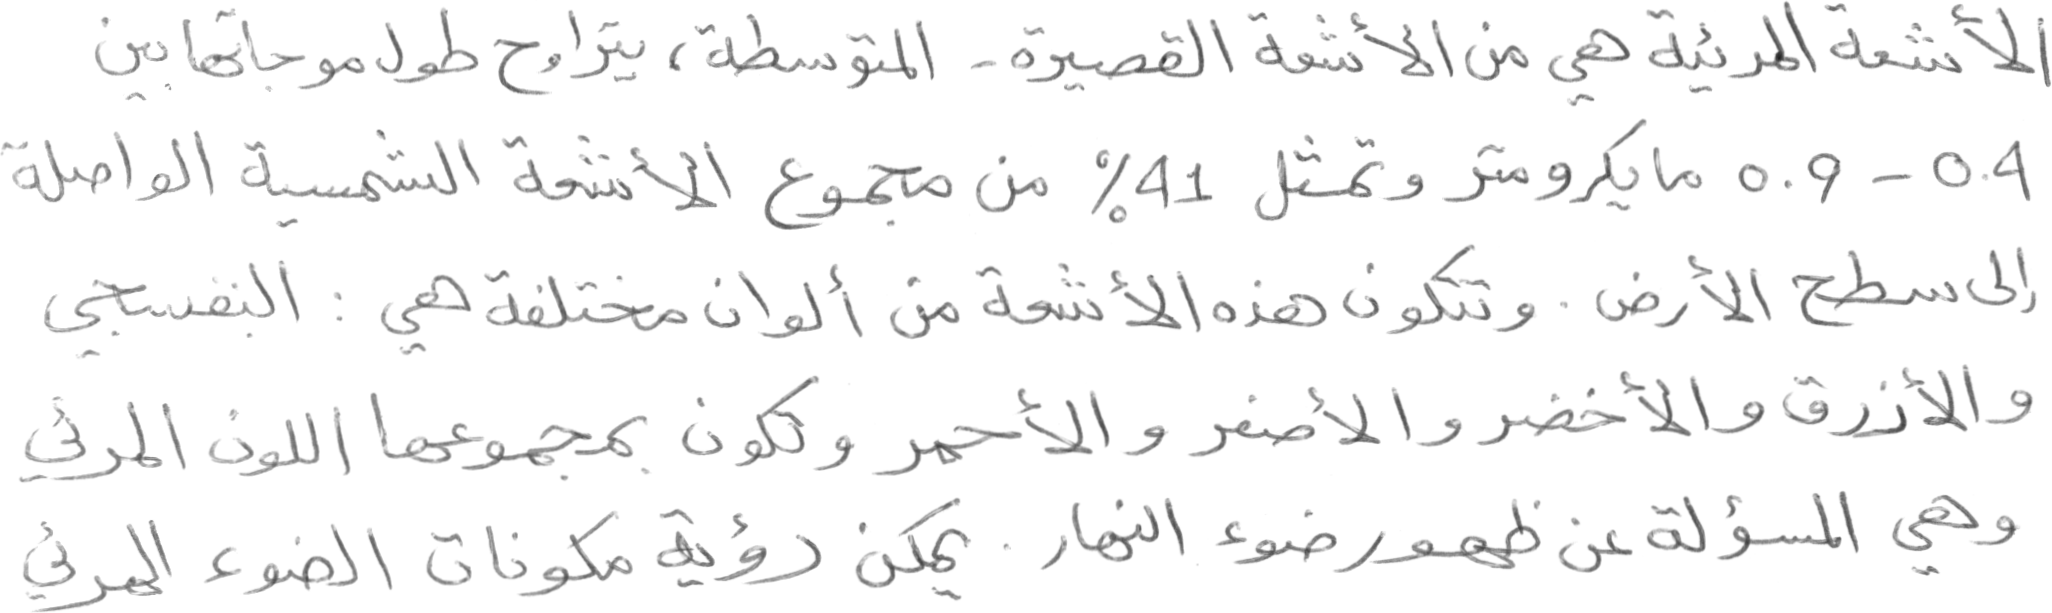 الأشعة المرئية هي من الأشعة القصيرة - المتوسطة، يتراوح طول موجاتها بين
0.4 - 0.9 مايكرومتر وتمثل 41% من مجموع الأشعة الشمسية الواصلة
إلى سطح الأرض. وتتكون هذه الأشعة من ألوان مختلفة هي : البنفسجي
والأزرق والأخضر والأصفر والأحمر وتكون بمجموعها اللون المرئي
وهي المسؤلة عن ظهور ضوء النهار. يمكن رؤية مكونات الضوء المرئي